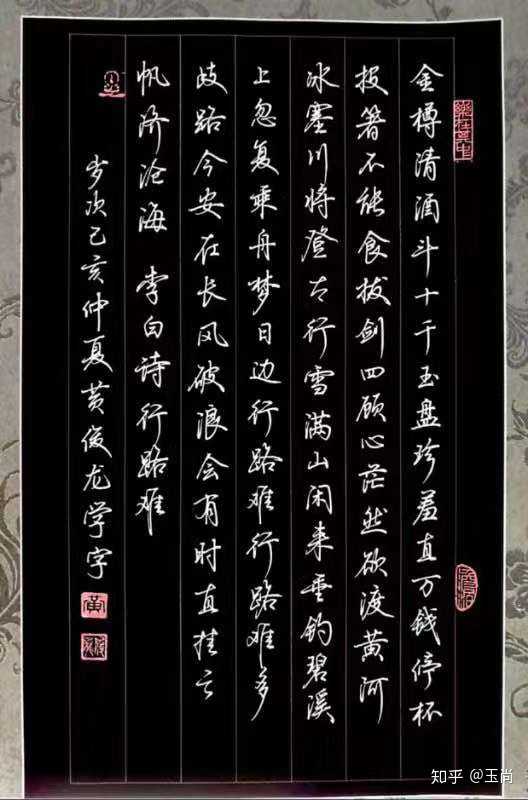 樂在其中
金樽清酒斗十千玉盘珍羞直万钱停杯
投箸不能食拔剑四顾心茫然欲渡黄河
冰塞川将登太行雪满山闲来垂钓碧溪
上忽复乘舟梦日边行路难行路难多
歧路今安在长风破浪会有时直挂云
帆济沧海 李白诗行路难
岁次己亥仲夏黄俊龙学字
黄
知乎 @玉尚